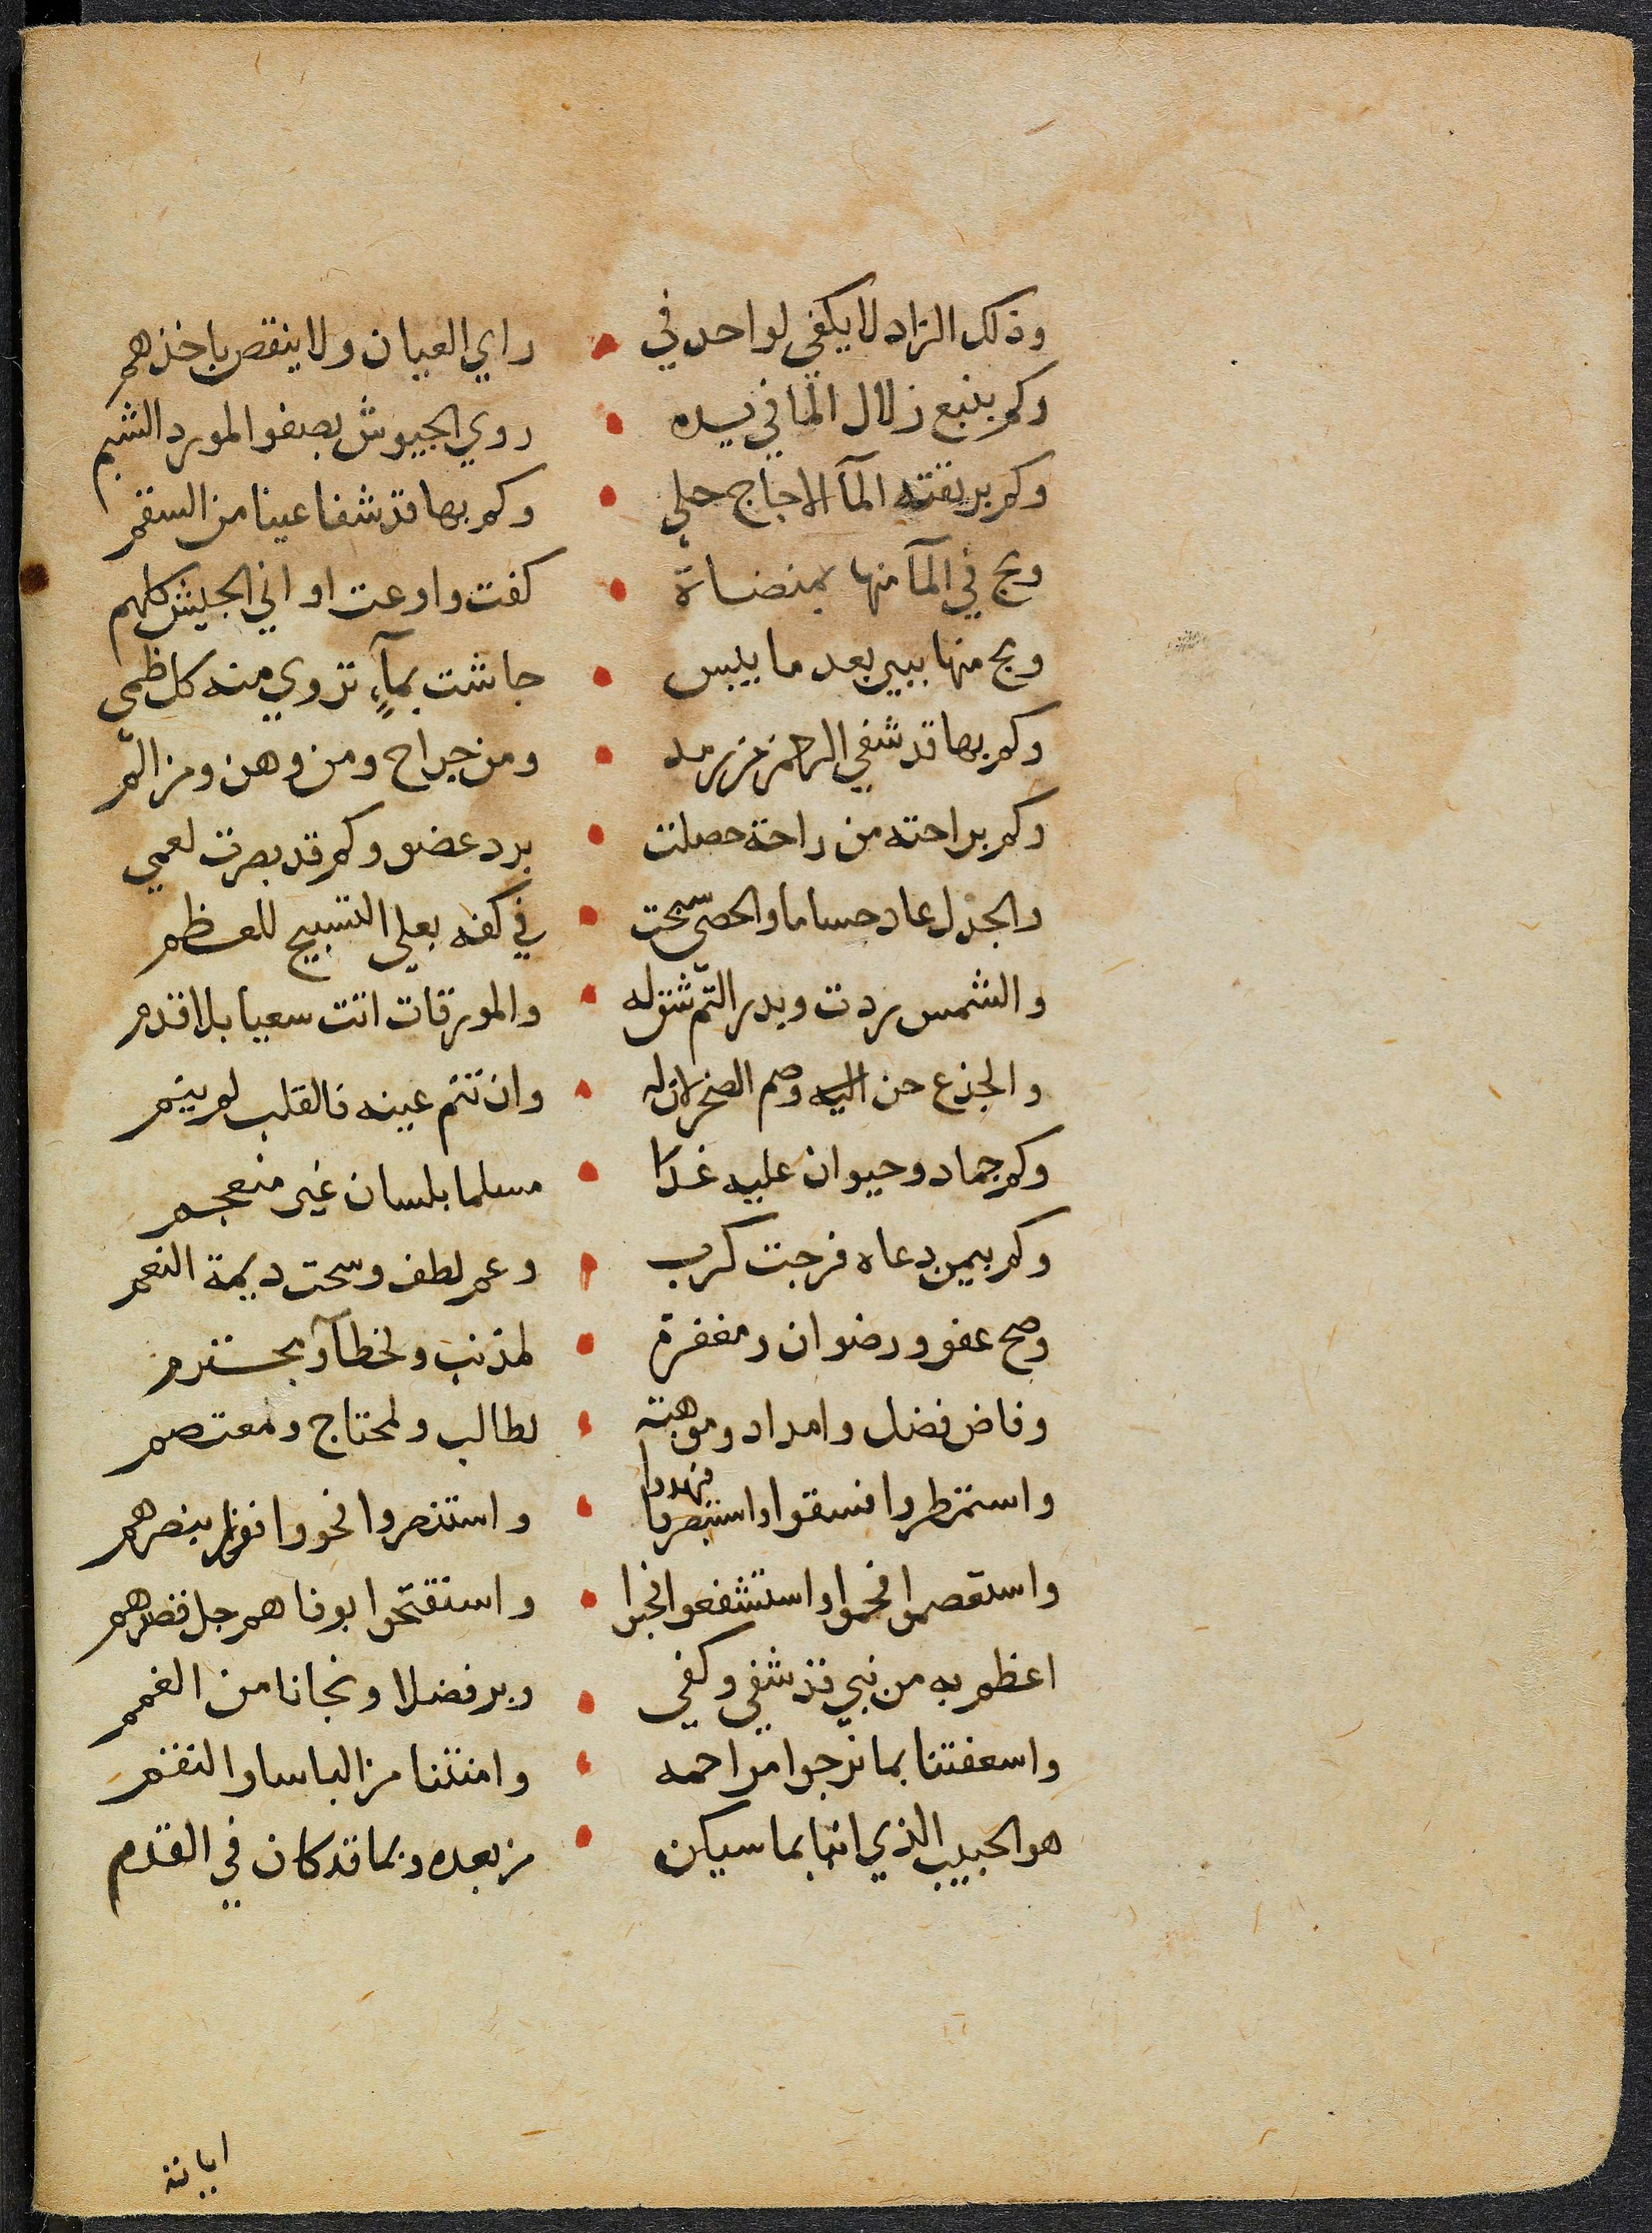 وذلك الزاد لا يكفي لواحد في • راي العيان ولا ينقص باخذهم
وكم بنبع زلال الما في يده • روي الجيوش بصفو المورد الشبم
وكم بريقته المآ الاجاج حلي • وكم بها قد شفا عينا من السقم
ومج في المآ منها بمنضاة • كفت واوعت اواني الجيش كلهم
ومج منها ببير بعد ما يبس • جاشت بمآءٍ تروي منه كل ظمي
وكم بها قد شفي الرحمن من رمد • ومن جراح ومن وهن ومن الم
وكم براحته من راحة حصلت • برد عضو وكم قد بصرت لعمي
والجزل عاد حساما والحصى سبحت • في كفه بعلي التسبيح للعظم
والشمس ردت وبدر التم شق له • والمورقات اتت سعيا بلا قدم
والجذع حن اليه وصم الصخر لان له • وان تنم عينه فالقلب لم ينم
وكم جماد وحيوان عليه غدا • مسلما بلسان غير منعجم
وكم بيمن دعاه فرجت كرب • وعم لطف وسحت ديمة النعم
وصح عفو ورضوان ومغفرة • لمذنب ولخطآء بمجترم
وفاض فضل وامداد وموهبة • لطالب ولمحتاج ومعتصم
واستمطروا فسقوا واستبصروا فهدوا • واستنصروا نحووا فوزا بنصرهم
واستعصموا فحموا واستشفعوا فحبوا • واستفتحوا بوفاهم جل قصدهم
اعظم به من نبي قد شفي وكفي • وبر فضلا ونجانا من الغمم
واسعفتنا بما نرجوا مراحمه • وامنتنا من الباسا والنقم
هو الحبيب الذي انبا بما سيكن • من بعده وبما قد كان في القدم
اياته